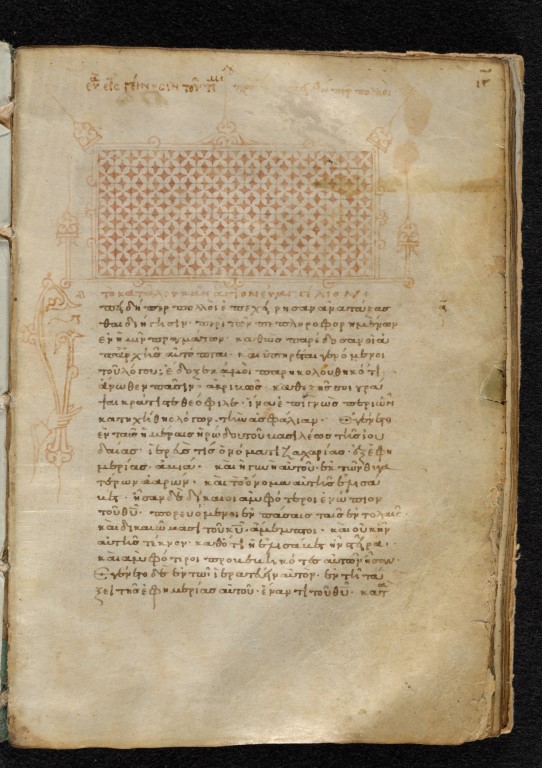 εὐ εἰς γέννησιν τοῦ τιμι
τὸ κατὰ λουκᾶν ἅγιον εὐαγγέλιον
πειδήπερ πολλοὶ ἐπεχείρησαν ἀνατάξασ
θαι διήγησιν· περὶ τῶν πεπληροφορημένων
ἐν ἡμῖν πραγμάτων· καθὼς παρέδοσαν οἱ ἀ
π' ἀρχῆς αὐτόπται· καὶ ὑπηρέται γενόμενοι
τοῦ λόγου· ἔδοξε κἀμοὶ παρηκολουθηκότι
ἄνωθεν πᾶσιν· ἀκριβῶς· καθεξῆς σοι γρά
ψαι κράτιστε θεόφιλε· ἵνα ἐπιγνῶς περὶ ὧν
κατηχήθης λόγων τὴν ἀσφάλειαν· Ἐγένετο
ἐν ταῖς ἡμέραις ἡρώδου τοῦ βασιλέως τῆς ἰου
δαίας· ἱερεύς τις ὀνόματι ζαχαρίας· ἐξ ἐφη
μερίας ἀβιά· καὶ ἡ γυνὴ αὐτοῦ· ἐκ τῶν θυγα
τέρων ἀαρών· καὶ τὸ ὄνομα αὐτῆς ἐλισά
βετ· ἦσαν δὲ δίκαιοι ἀμφότεροι ἐνώπιον
τοῦ θυ· πορευόμενοι ἐν πάσαις ταῖς ἐντολαῖς
καὶ δικαιώμασι τοῦ κυ ἄμεμπτοι· καὶ οὐκ ἦν
αὐτοῖς τέκνον· καθότι ἡ ἐλισάβετ ἦν στεῖρα·
καὶ ἀμφότεροι προβεβηκότες αὐτῶν ἦσαν
Ἐγένετο δὲ ἐν τῷ ἱερατεύειν αὐτὸν· ἐν τῇ τά
ξει τῆς ἐφημερίας αὐτοῦ· ἔναντι τοῦ θυ· κατὰ